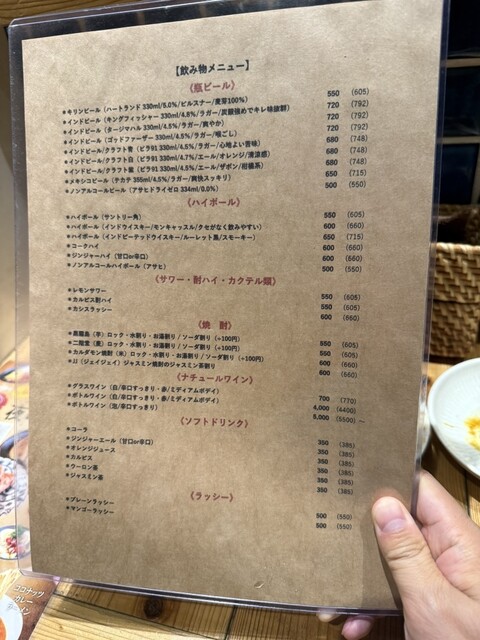 【飲み物メニュー】
〈瓶ビール〉
*キリンビール（ハートランド 330ml/5.0%/ピルスナー/麦芽100%） 550 (605)
*インドビール（キングフィッシャー 330ml/4.8%/ラガー/炭酸強めでキレ味抜群） 720 (792)
*インドビール（タージマハル 330ml/4.5%/ラガー/爽やか） 720 (792)
*インドビール（ゴッドファーザー 330ml/4.5%/ラガー/喉ごし） 720 (792)
*インドビール/クラフト青（ビラ91 330ml/4.5%/ラガー/心地よい苦味） 680 (748)
*インドビール/クラフト白（ビラ91 330ml/4.7%/エール/オレンジ/清涼感） 680 (748)
*インドビール/クラフト紫（ビラ91 330ml/4.5%/エール/ザボン/柑橘系） 680 (748)
*メキシコビール（テカテ 355ml/4.5%/ラガー/爽快スッキリ） 650 (715)
*ノンアルコールビール（アサヒドライゼロ 334ml/0.0%） 500 (550)
〈ハイボール〉
*ハイボール（サントリー角） 550 (605)
*ハイボール（インドウイスキー/モンキャッスル/クセがなく飲みやすい） 600 (660)
*ハイボール（インドピーテッドウイスキー/ルーレット黒/スモーキー） 650 (715)
*コークハイ 600 (660)
*ジンジャーハイ（甘口or辛口） 600 (660)
*ノンアルコールハイボール（アサヒ） 500 (550)
〈サワー・酎ハイ・カクテル類〉
*レモンサワー 550 (605)
*カルピス酎ハイ 550 (605)
*カシスラッシー 600 (660)
〈焼 酎〉
*黒霧島（芋）ロック・水割り・お湯割り / ソーダ割り（+100円） 550 (605)
*二階堂（麦）ロック・水割り・お湯割り / ソーダ割り（+100円） 550 (605)
*カルダモン焼酎（米）ロック・水割り・お湯割り / ソーダ割り（+100円） 600 (660)
*JJ（ジェイジェイ）ジャスミン焼酎のジャスミン茶割り 600 (660)
〈ナチュールワイン〉
*グラスワイン（白/辛口すっきり・赤/ミディアムボディ） 700 (770)
*ボトルワイン（白/辛口すっきり・赤/ミディアムボディ） 4,000 (4400)
*ボトルワイン（泡/辛口すっきり） 5,000 (5500) ～
〈ソフトドリンク〉
*コーラ 350 (385)
*ジンジャーエール（甘口or辛口） 350 (385)
*オレンジジュース 350 (385)
*カルピス 350 (385)
*ウーロン茶 350 (385)
*ジャスミン茶 350 (385)
〈ラッシー〉
*プレーンラッシー 500 (550)
*マンゴーラッシー 500 (550)
ココナッツ
カレー